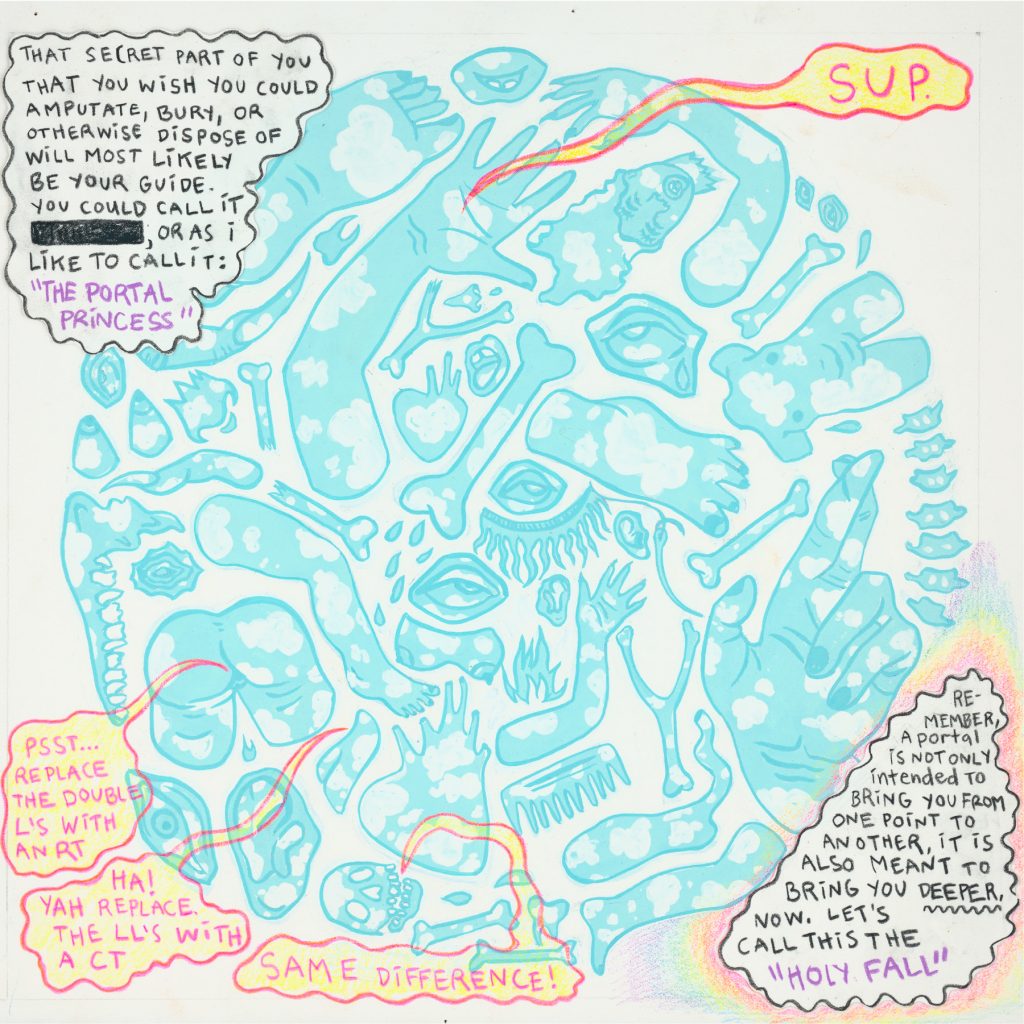 THAT SECRET PART OF YOU
THAT YOU WISH YOU COULD
AMPUTATE, BURY, OR
OTHERWISE DISPOSE OF
WILL MOST LIKELY
BE YOUR GUIDE.
YOU COULD CALL IT
, OR AS I
LIKE TO CALL IT:
"THE PORTAL
PRINCESS"
SUP.
PSST...
REPLACE
THE DOUBLE
L'S WITH
AN RT
HA!
YAH REPLACE.
THE LL'S WITH
A CT
SAME DIFFERENCE!
RE-
MEMBER,
A portal
IS NOT ONLY
intended to
BRING YOU FROM
ONE POINT TO
ANOTHER, IT IS
ALSO MEANT TO
BRING YOU DEEPER.
NOW. LET'S
CALL THIS THE
"HOLY FALL"